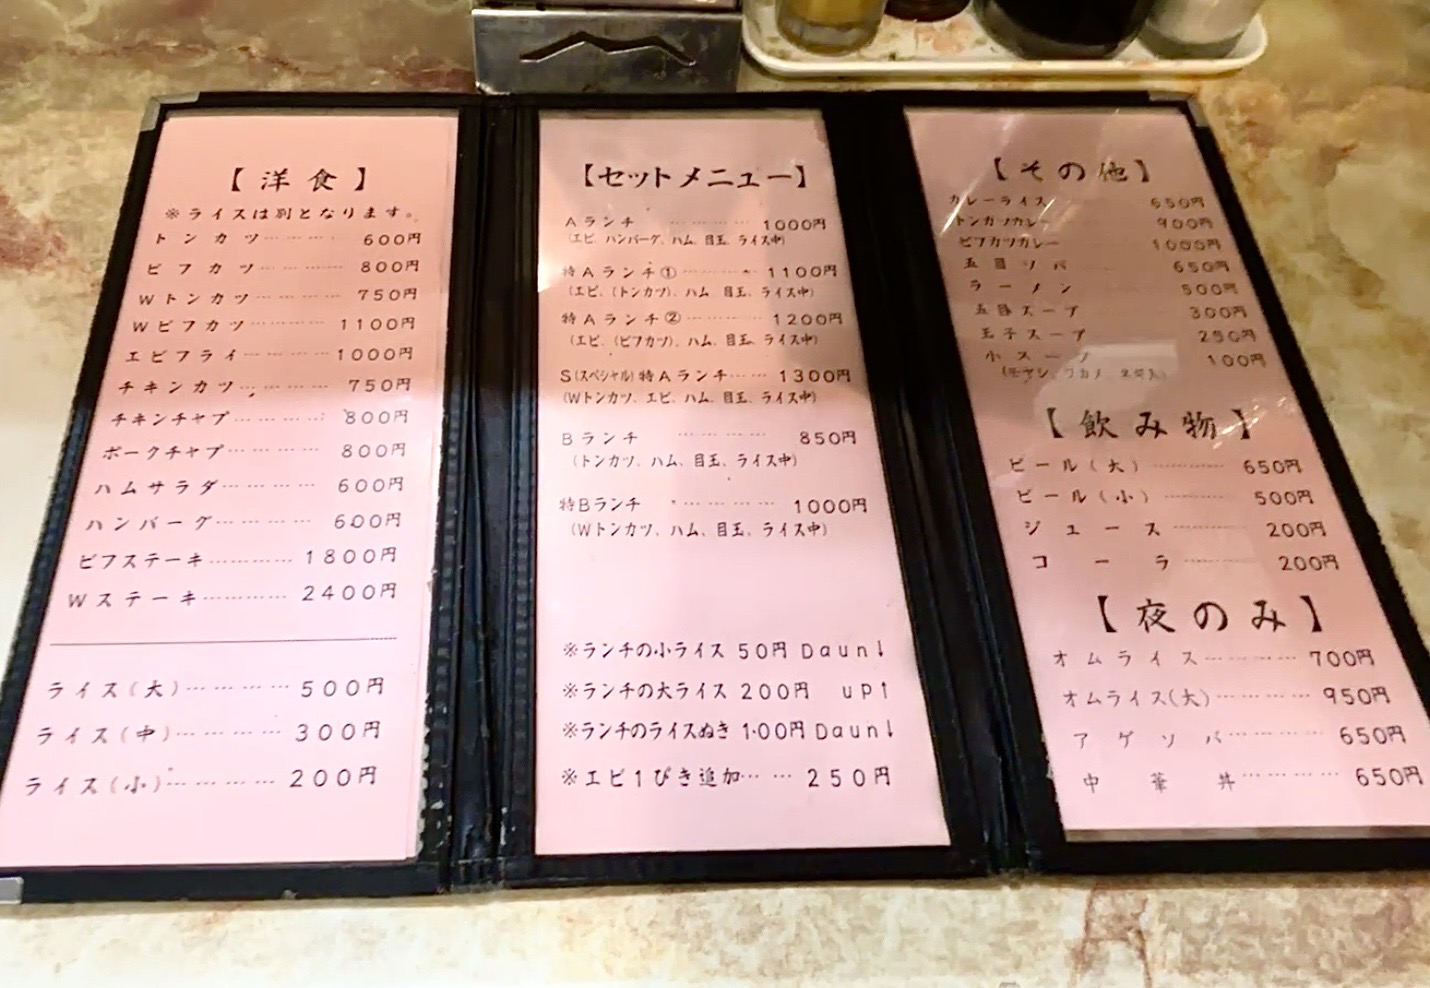 【洋食】
※ライスは別となります。
トンカツ………… 600円
ビフカツ………… 800円
Wトンカツ………… 750円
Wビフカツ………… 1100円
エビフライ………… 1000円
チキンカツ………… 750円
チキンチャプ………… 800円
ポークチャプ………… 800円
ハムサラダ………… 600円
ハンバーグ………… 600円
ビフステーキ………… 1800円
Wステーキ………… 2400円
ライス(大)………… 500円
ライス(中)………… 300円
ライス(小)………… 200円
【セットメニュー】
Aランチ ………… 1000円
(エビ、ハンバーグ、ハム、目玉、ライス中)
特Aランチ① ………… 1100円
(エビ、(トンカツ)、ハム、目玉、ライス中)
特Aランチ② ………… 1200円
(エビ、(ビフカツ)、ハム、目玉、ライス中)
S(スペシャル)特Aランチ…… 1300円
(Wトンカツ、エビ、ハム、目玉、ライス中)
Bランチ ………… 850円
(トンカツ、ハム、目玉、ライス中)
特Bランチ ………… 1000円
(Wトンカツ、ハム、目玉、ライス中)
※ランチの小ライス 50円 Daun↓
※ランチの大ライス 200円 up↑
※ランチのライスぬき 100円 Daun↓
※エビ1ぴき追加…… 250円
【その他】
カレーライス 650円
トンカツカレー 900円
ビフカツカレー 1000円
五目ソバ 650円
ラーメン 500円
五目スープ 300円
玉子スープ 250円
小スープ 100円
(モヤシ、ワカメ、
【飲み物】
ビール(大)………… 650円
ビール(小)………… 500円
ジュース………… 200円
コーラ………… 200円
【夜のみ】
オムライス………… 700円
オムライス(大)………… 950円
アゲソバ………… 650円
中華丼………… 650円